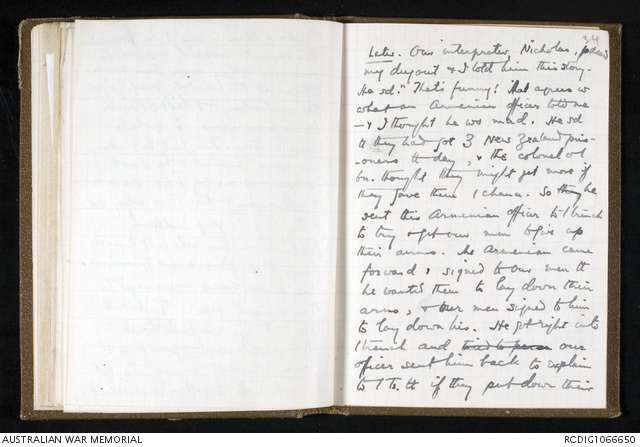 34
Later. Our interpreter, Nicholas, passed
my dugout & I told him this story.
He sd: "That's funny! That agrees w
what an Armenian officer told me
— & I thought he was mad. He sd
tt they had got 3 New Zealand pris-
oners to day, & the colonel of t
bn. thought they might get more if
they gave them 1 chance. So they he
sent this Armenian officer to t trench
to try & get our men to give up
their arms. The Armenian came
forward & signed to our men tt
he wanted them to lay down their
arms, & our men signed to him
to lay down his. He got right into
t trench and our
officer sent him back to explain
to t T. tt if they put down their
AUSTRALIAN WAR MEMORIAL
RCDIG1066650